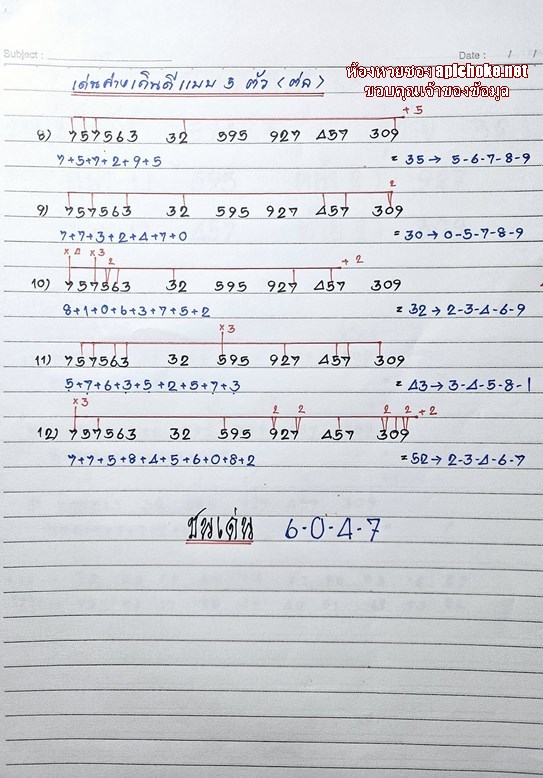 Subject : Date : / /
ห้องหวยซอง aplchoke.net
ขอบคุณเจ้าของข้อมูล
เด่นล่างเดินดีแบบ 5 ตัว (ต่อ)
+5
8) 757563 32 595 927 457 309
7+5+7+2+9+5 = 35 → 5-6-7-8-9
2
9) 757563 32 595 927 457 309
7+7+3+2+4+7+0 = 30 → 0-5-7-8-9
x4 x3 2 +2
10) 757563 32 595 927 457 309
8+1+0+6+3+7+5+2 = 32 → 2-3-4-6-9
x3
11) 757563 32 595 927 457 309
5+7+6+3+5+2+5+7+3 = 43 → 3-4-5-8-1
x3 2 2 2 2 +2
12) 757563 32 595 927 457 309
7+7+5+8+4+5+6+0+8+2 = 52 → 2-3-4-6-7
ชนเด่น 6-0-4-7